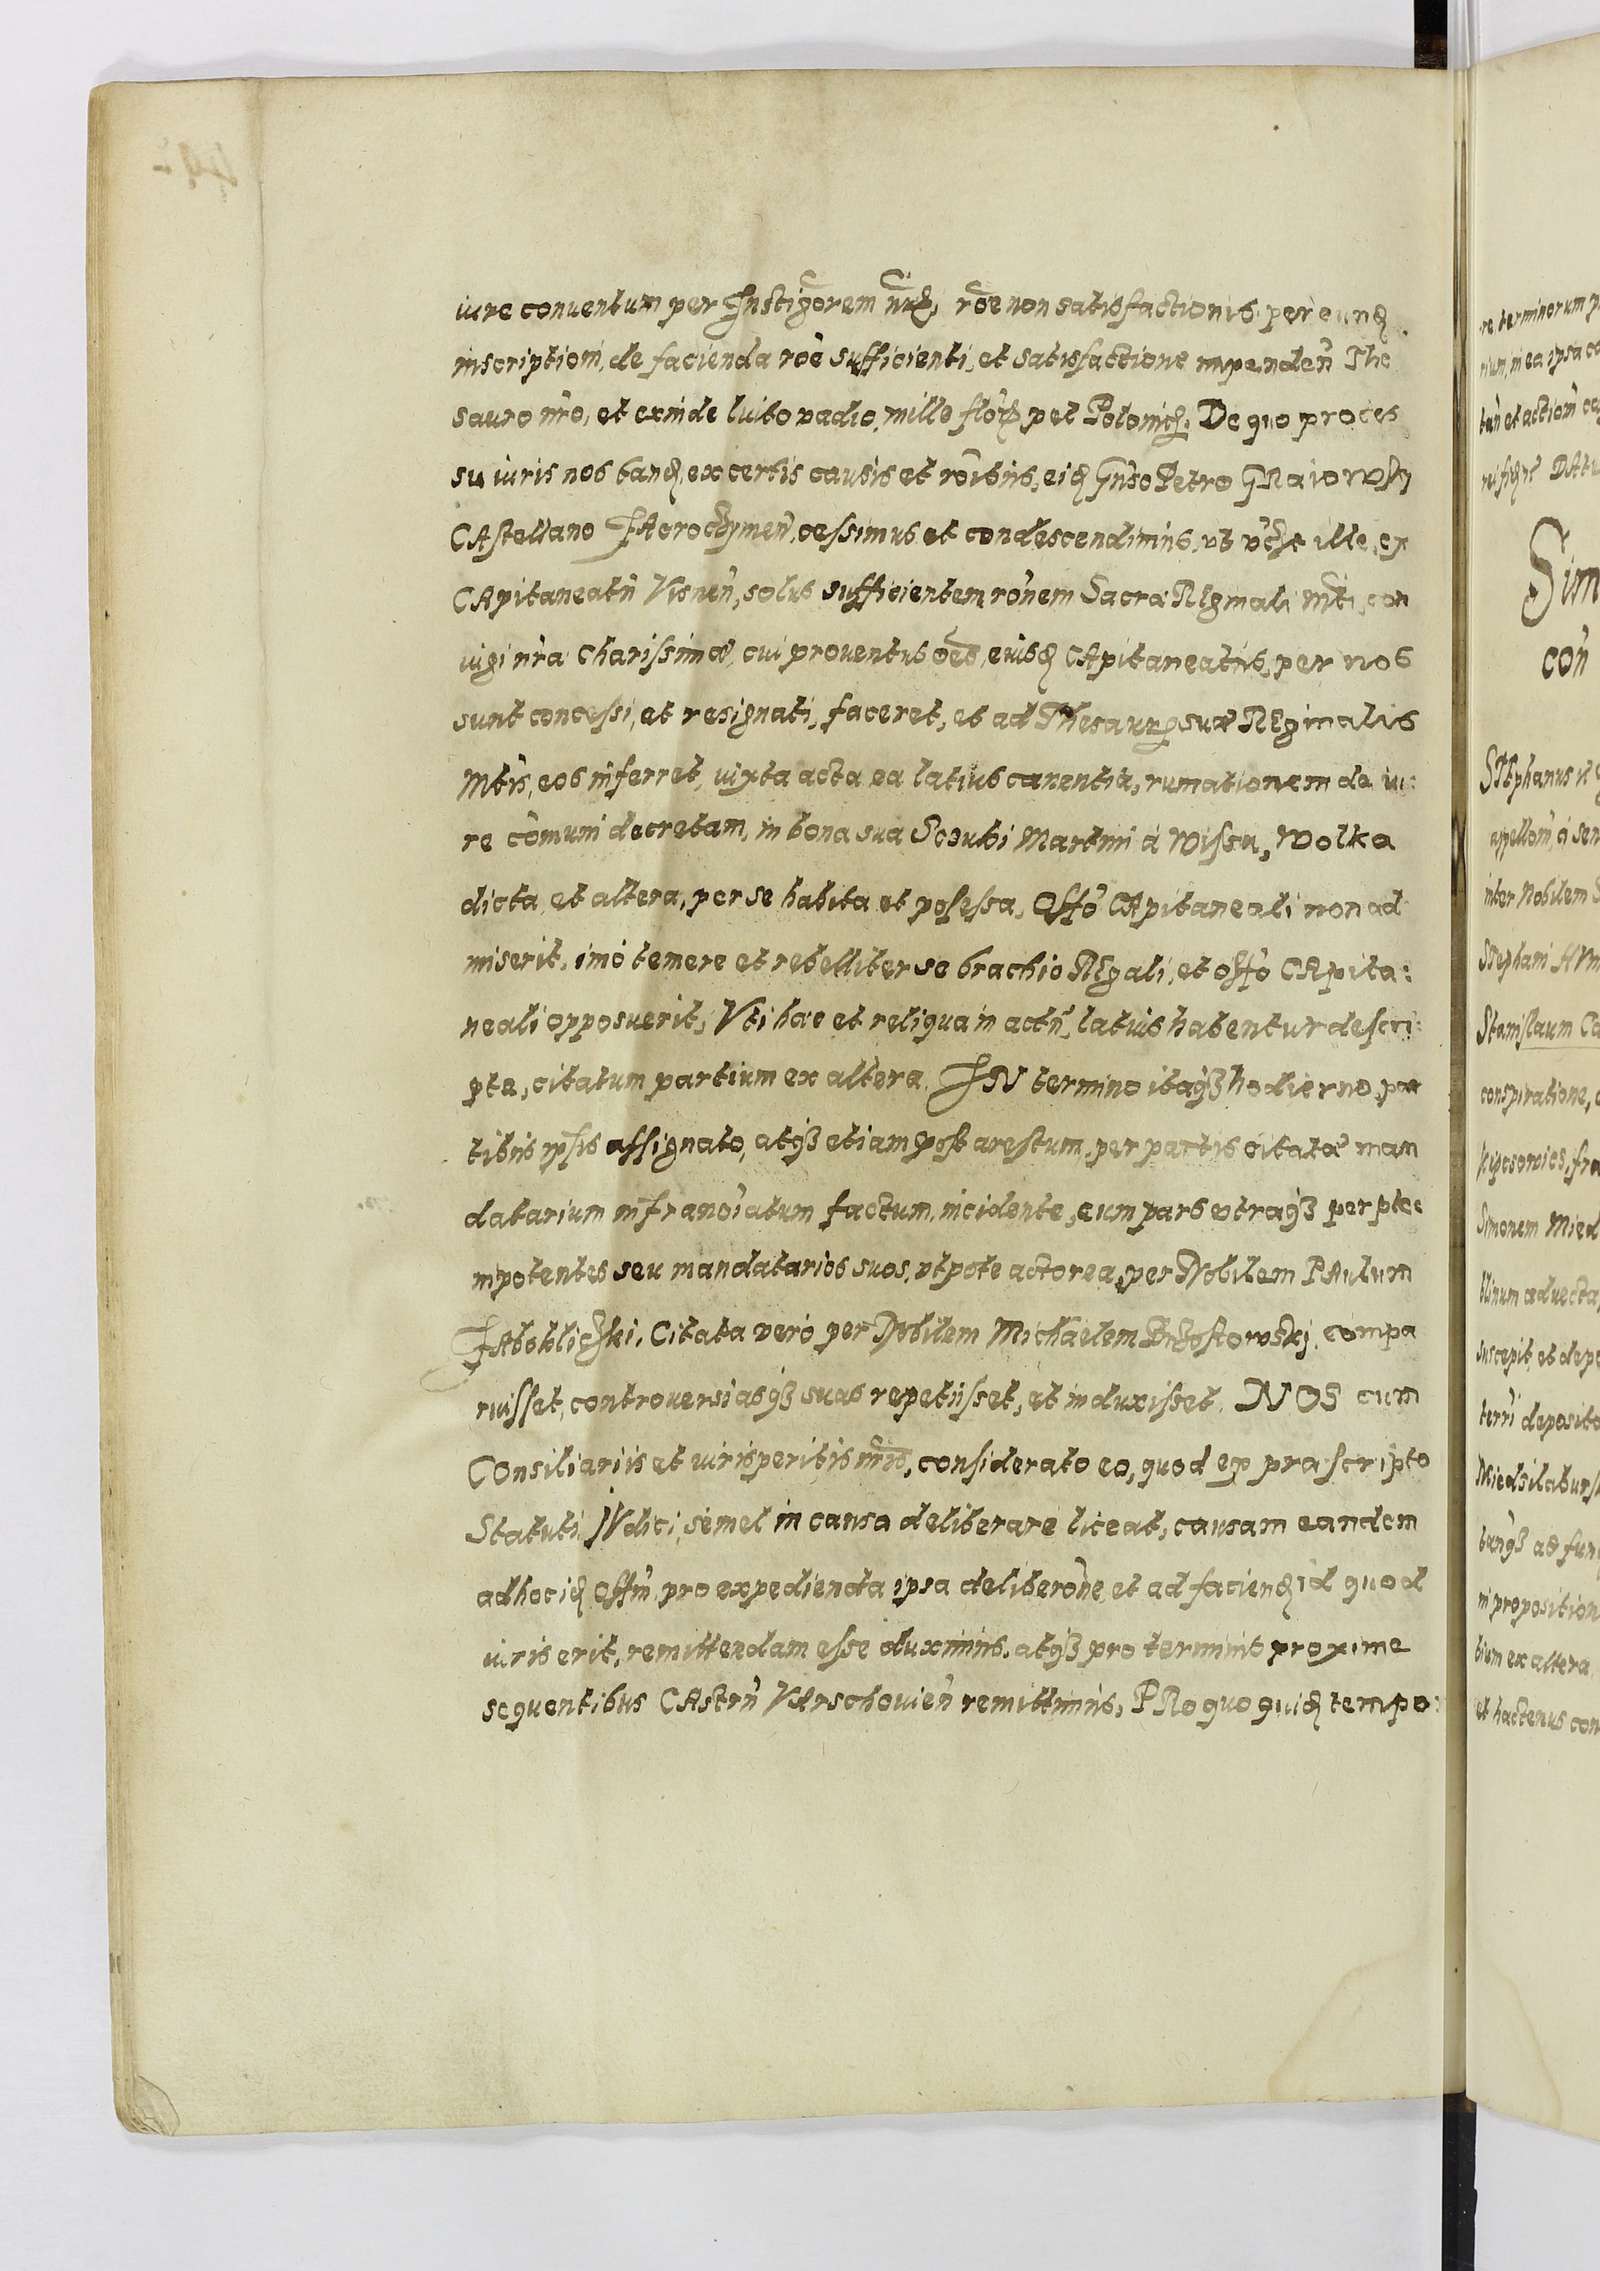 iure conuentum per Instigōrem nrū, rōe non satisfactionis per eund
inscriptiom, de facienda roē sufficienti, et satisfactione impendeñ The
sauro nr̃o, et exinde luito vadio, mille flor pet Polonich. De quo proces
su iuris nos tand, ex certis causis et roībus, eid Gñso Petro GRaiowsky
CAstellano cessimus et condescendimus, vt ille, ex
CApitaneatu Visneñ, solus sufficientem rōnem Sacra REginali Mti, con
iugi nr̃a Charissimæ, cui prouentus oēs, eiusd CApitaneatus, per nos
sunt concessi, et resignati, faceret, et ad Thesaur suæ REginalis
Mtis, eos inferret, iuxta acta ea latius canentia, rumationem de iu:
re comuni decretam, in bona sua Martini à Wissa, Wolka
dicta et altera, per se habita et possessa, Offo CApitaneali non ad
miserit, imò temere et rebelliter se brachio REgali, et offo CApita:
neali opposuerit, Vti hæc et reliqua in actñ latius habentur descri:
pta, citatum partium ex altera. IN termino itaqз hodierno, par
tibus ipsis assignato, atqз etiam post arestum, per partis citatæ man
datarium factum, incidente, cum pars vtraqз per plee
nipotentes seu mandatarios suos, vtpote actorea, per Nobilem PAulum
Citata verò per Nobilem Michaelem compa
ruisset, controuersiasqз suas repetijsset, et induxisset. NOS cum
COnsiliariis et iurisperitis nr̃is, considerato eo, quod ex præscripto
Statuti IVdici, semel in causa deliberare liceat, causam eandem
adhoc id offm, pro expedienda ipsa deliberōne, et ad faciend id quod
iuris erit, remittendam esse duximus, atqз pro terminis proxime
sequentibus CAstrñ VArschouieñ remittimus, PRo quo quid tempo:
re terminorum
rium, in ea ipsa
et actiom
DAtu
Sim
con
STephanus
à sen
inter Nobilem
STephani
Stanislaum
conspiratione,
Simonem Mied
aduecta
suscepit, et
terri deposito
ad
in proposition
tium ex altera
et hactenus con